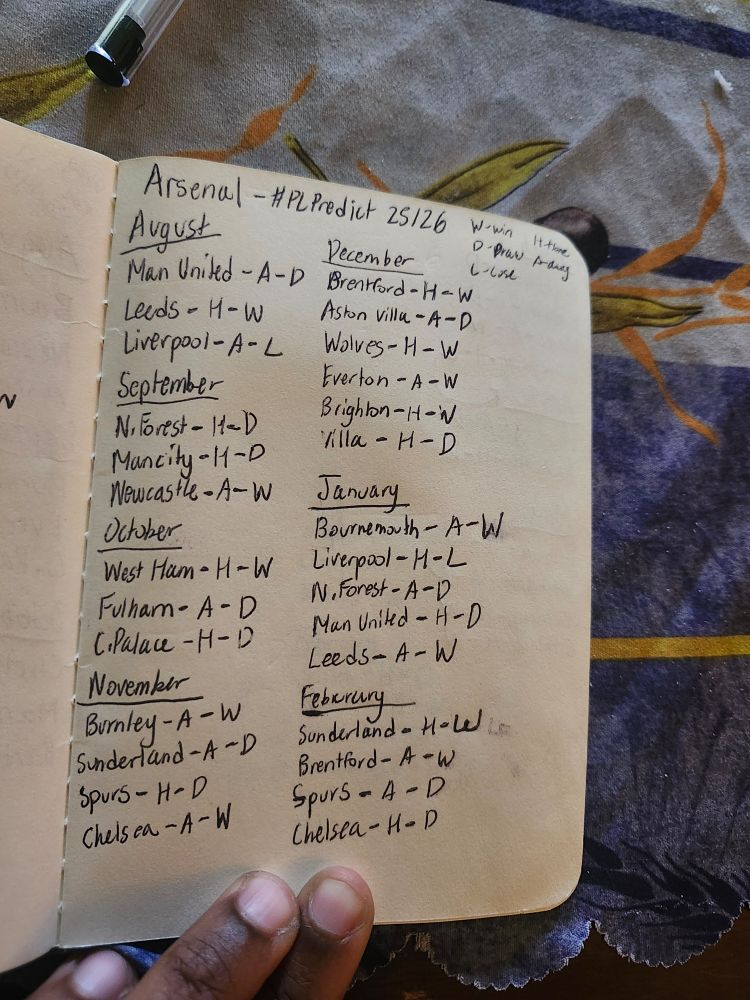 Arsenal - #PLPredict 25/26
W-win H-Home
D-Draw A-away
L-Lose
August
Man United - A - D
Leeds - H - W
Liverpool - A - L
September
N.Forest - H - D
Mancity - H - D
Newcastle - A - W
October
West Ham - H - W
Fulham - A - D
C.Palace - H - D
November
Burnley - A - W
Sunderland - A - D
Spurs - H - D
Chelsea - A - W
December
Brentford - H - W
Aston Villa - A - D
Wolves - H - W
Everton - A - W
Brighton - H - W
Villa - H - D
January
Bournemouth - A - W
Liverpool - H - L
N.Forest - A - D
Man United - H - D
Leeds - A - W
Feburary
Sunderland - H - W
Brentford - A - W
Spurs - A - D
Chelsea - H - D